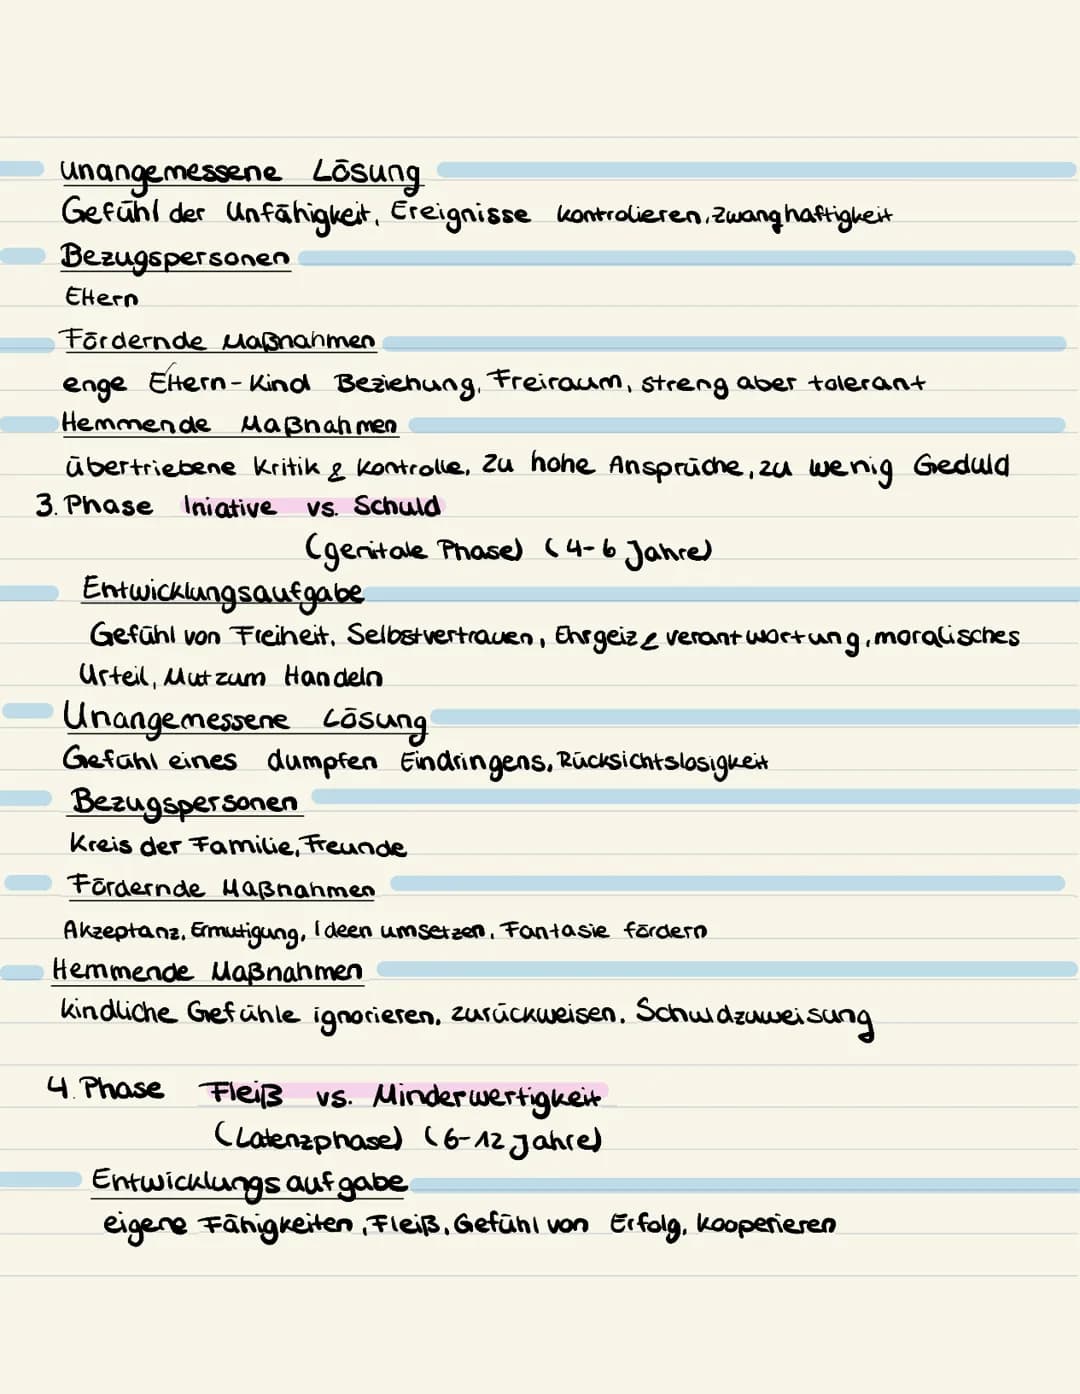 Unangemessene Lösung
Gefühl der Unfähigkeit, Ereignisse kontrolieren, Zwanghaftigkeit
Bezugspersonen
Eltern
Fördernde Maßnahmen
enge Eltern-Kind Beziehung, Freiraum, streng aber tolerant
Hemmende Maßnahmen
übertriebene Kritik & Kontrolle, zu hohe Ansprüche, zu wenig Geduld
3. Phase Iniative vs. Schuld
(genitale Phase) (4-6 Jahre)
Entwicklungsaufgabe
Gefühl von Freiheit, Selbstvertrauen, Ehrgeiz & verantwortung, moralisches
Urteil, Mut zum Handeln
Unangemessene Lösung
Gefühl eines dumpfen Eindringens, Rücksichtslosigkeit
Bezugspersonen
Kreis der Familie, Freunde
Fördernde Maßnahmen
Akzeptanz, Ermutigung, Ideen umsetzen, Fantasie fördern
Hemmende Maßnahmen
kindliche Gefühle ignorieren, zurückweisen, Schuldzuweisung
4. Phase Fleiß vs. Minderwertigkeit
(Latenzphase) (6-12 Jahre)
Entwicklungsaufgabe
eigene Fähigkeiten, Fleiß, Gefühl von Erfolg, kooperieren